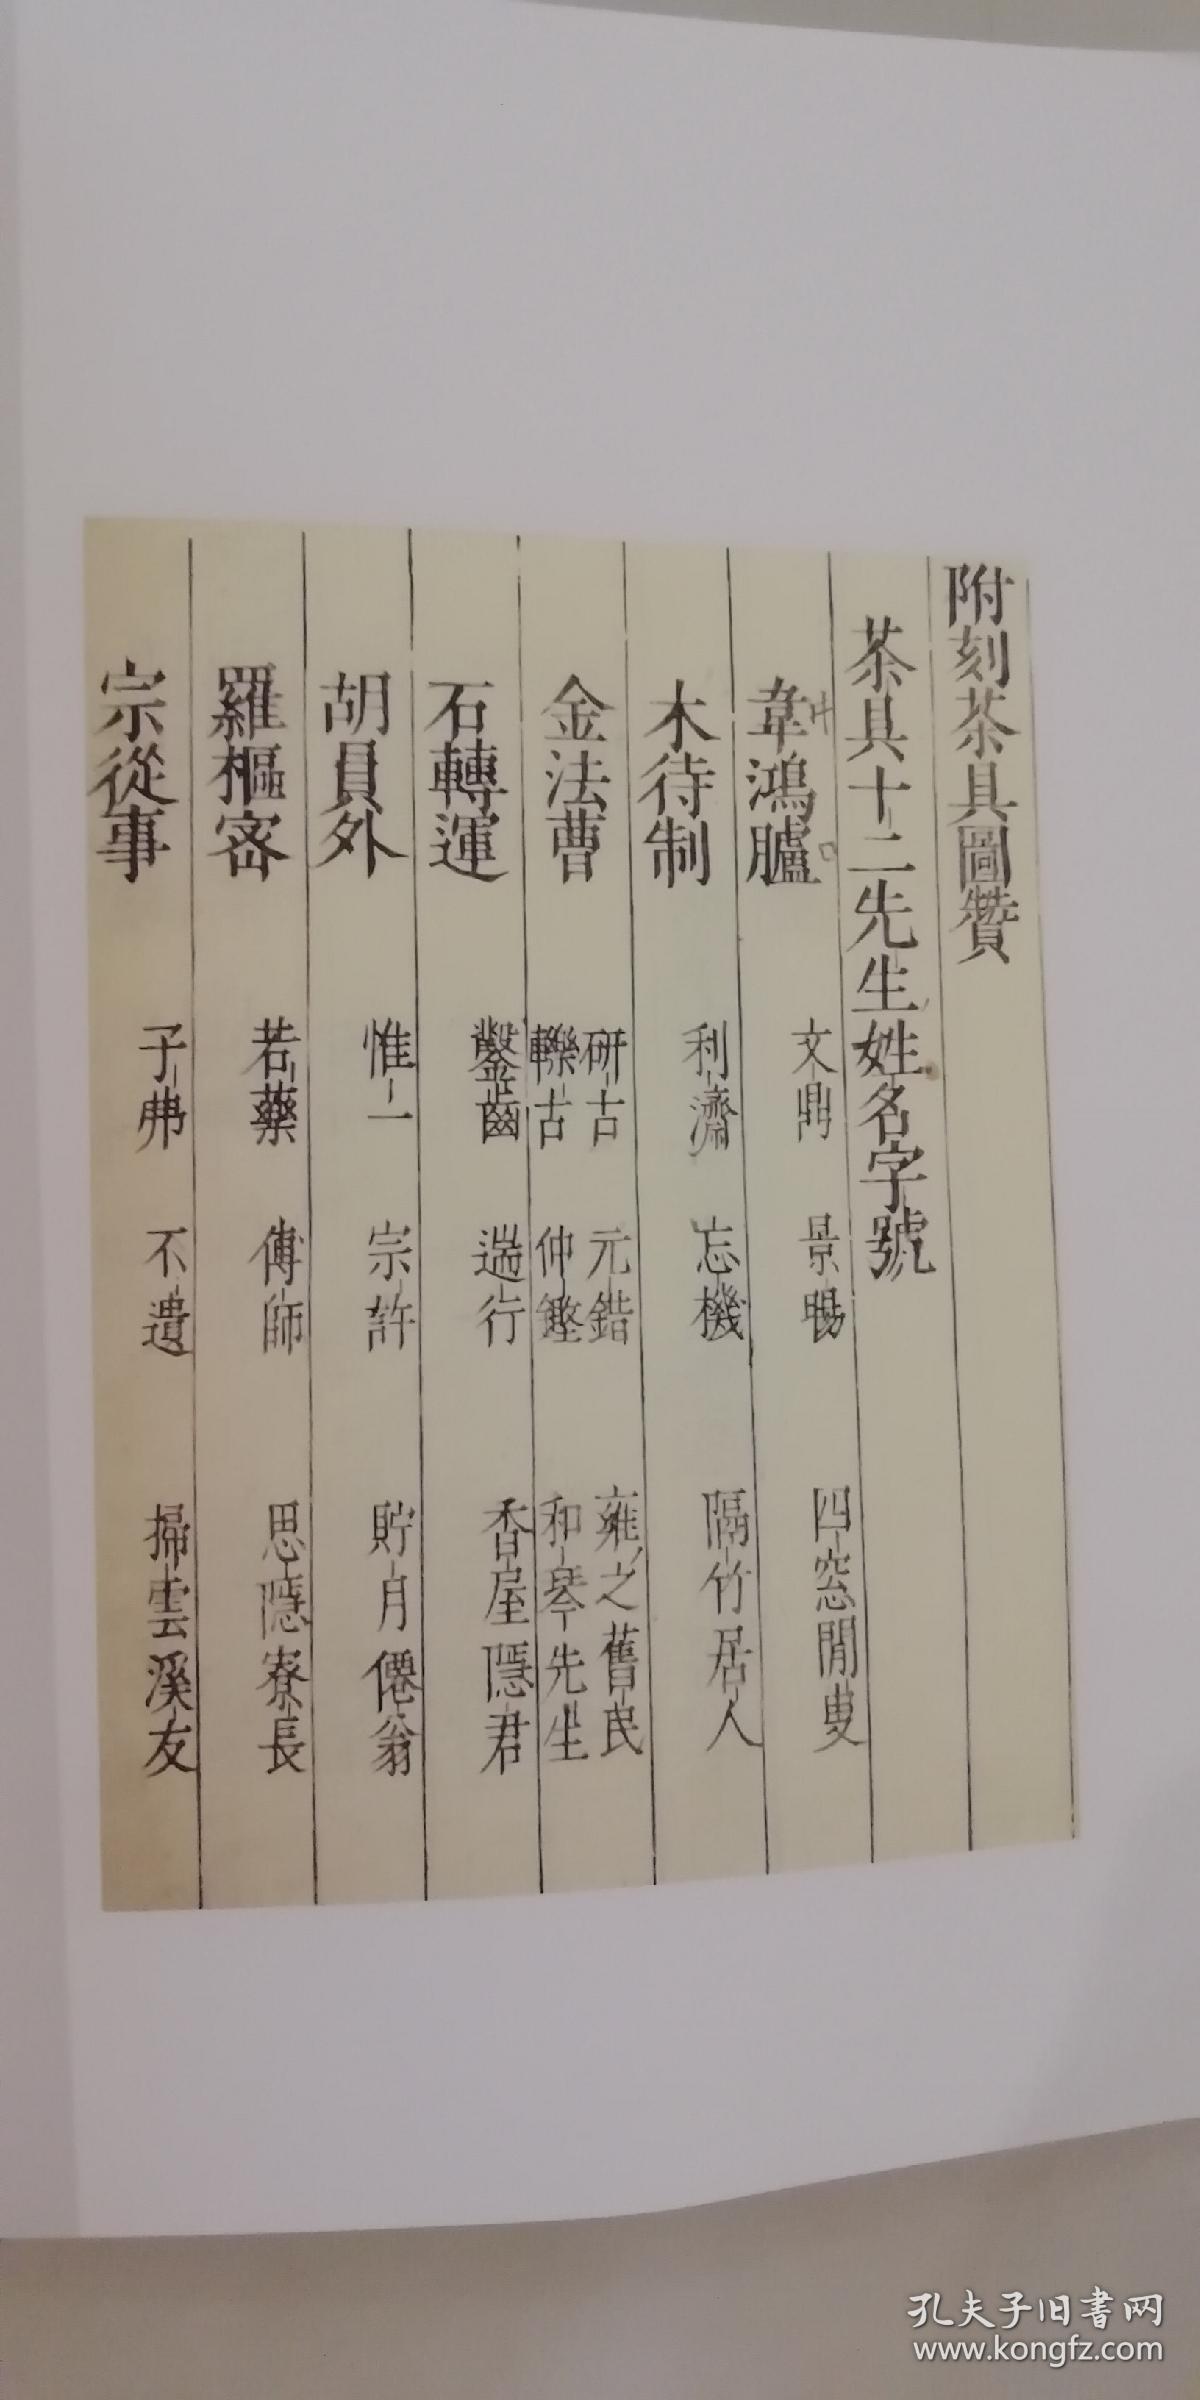 附刻茶具圖贊
茶具十二先生姓名字號
韋鴻臚 文鼎 景暘 四窓閒叟
木待制 利濟 忘機 隔竹居人
金法曹 研古 元鍇 雍之舊民
轢古 仲鏗 和琴先生
石轉運 鑿齒 遄行 香屋隱君
胡員外 惟一 宗許 貯月僊翁
羅樞密 若藥 傅師 思隱寮長
宗從事 子弗 不遺 掃雲溪友
孔夫子旧书网
www.kongfz.com